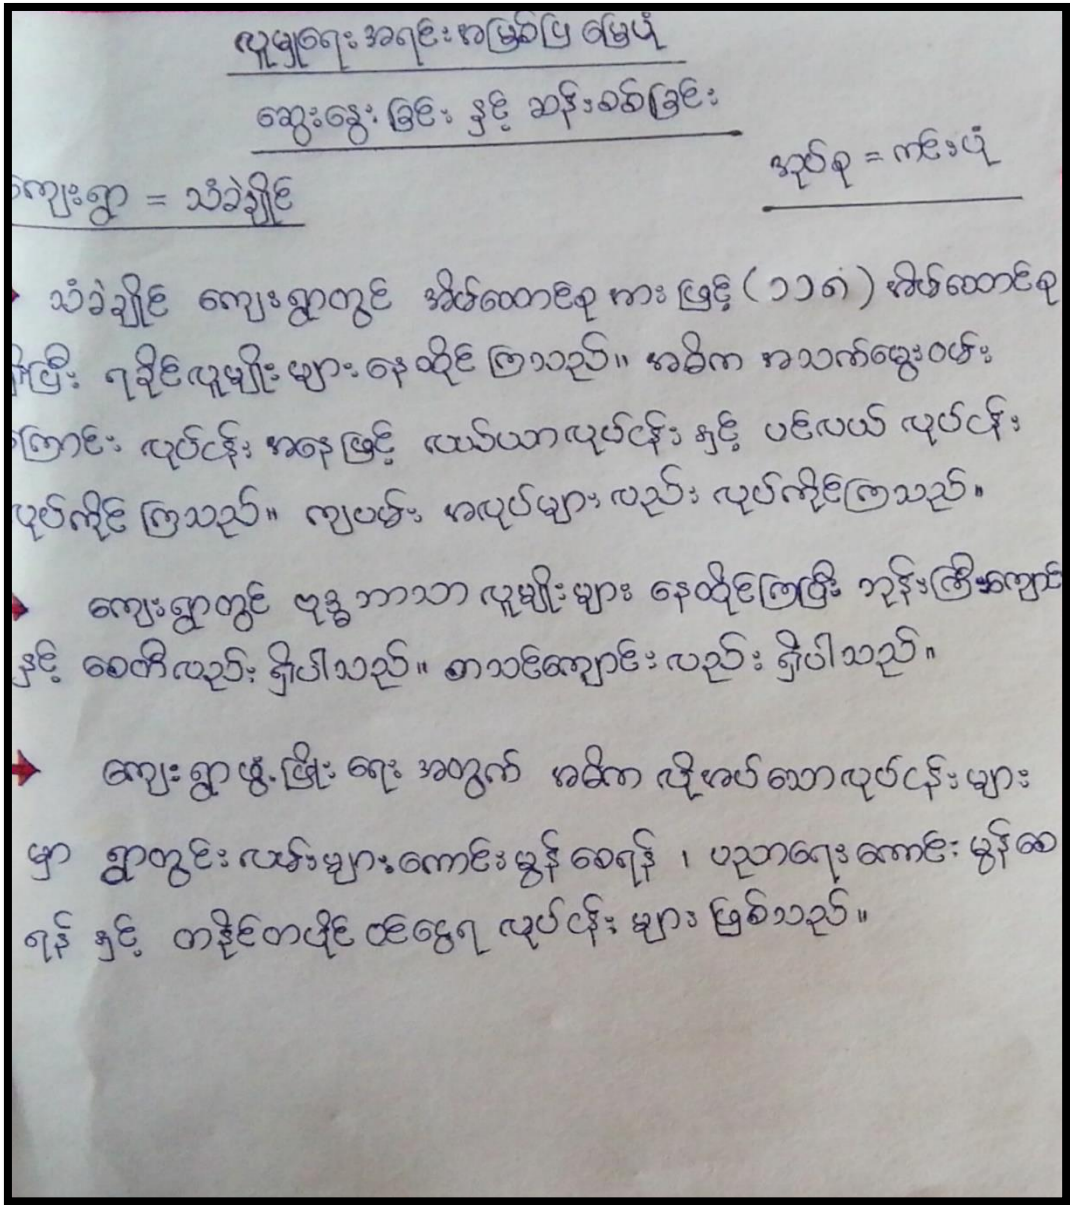 လူမှုရေးအရင်းအမြစ်ပြ မြေပုံ
ဆွေးနွေးခြင်း နှင့် ဆန်းစစ်ခြင်း
အုပ်စု = ကင်းပုံ
ကျေးရွာ = သံခဲချိုင်
သံခဲချိုင် ကျေးရွာတွင် အိမ်ထောင်စုအားဖြင့် (၁၁၈) အိမ်ထောင်စု
ရှိပြီး ရခိုင်လူမျိုးများ နေထိုင်ကြသည်။ အဓိက အသက်မွေးဝမ်း
ကြောင်း လုပ်ငန်း အနေဖြင့် လယ်ယာလုပ်ငန်း နှင့် ပင်လယ် လုပ်ငန်း
လုပ်ကိုင်ကြသည်။ ကျပမ်း အလုပ်များလည်း လုပ်ကိုင်ကြသည်။
ကျေးရွာတွင် ဗုဒ္ဓဘာသာ လူမျိုးများ နေထိုင်ကြပြီး ဘုန်းကြီးကျောင်
နှင့် စေတီလည်း ရှိပါသည်။ စာသင်ကျောင်းလည်း ရှိပါသည်။
ကျေးရွာဖွံ့ဖြိုးရေး အတွက် အဓိက လိုအပ်သောလုပ်ငန်းများ
မှာ ရွာတွင်းလမ်းများကောင်းမွန်စေရန် ၊ ပညာရေးကောင်းမွန်စေ
ရန် နှင့် တနိုင်တပိုင် ဝင်ငွေရ လုပ်ငန်းများ ဖြစ်သည်။